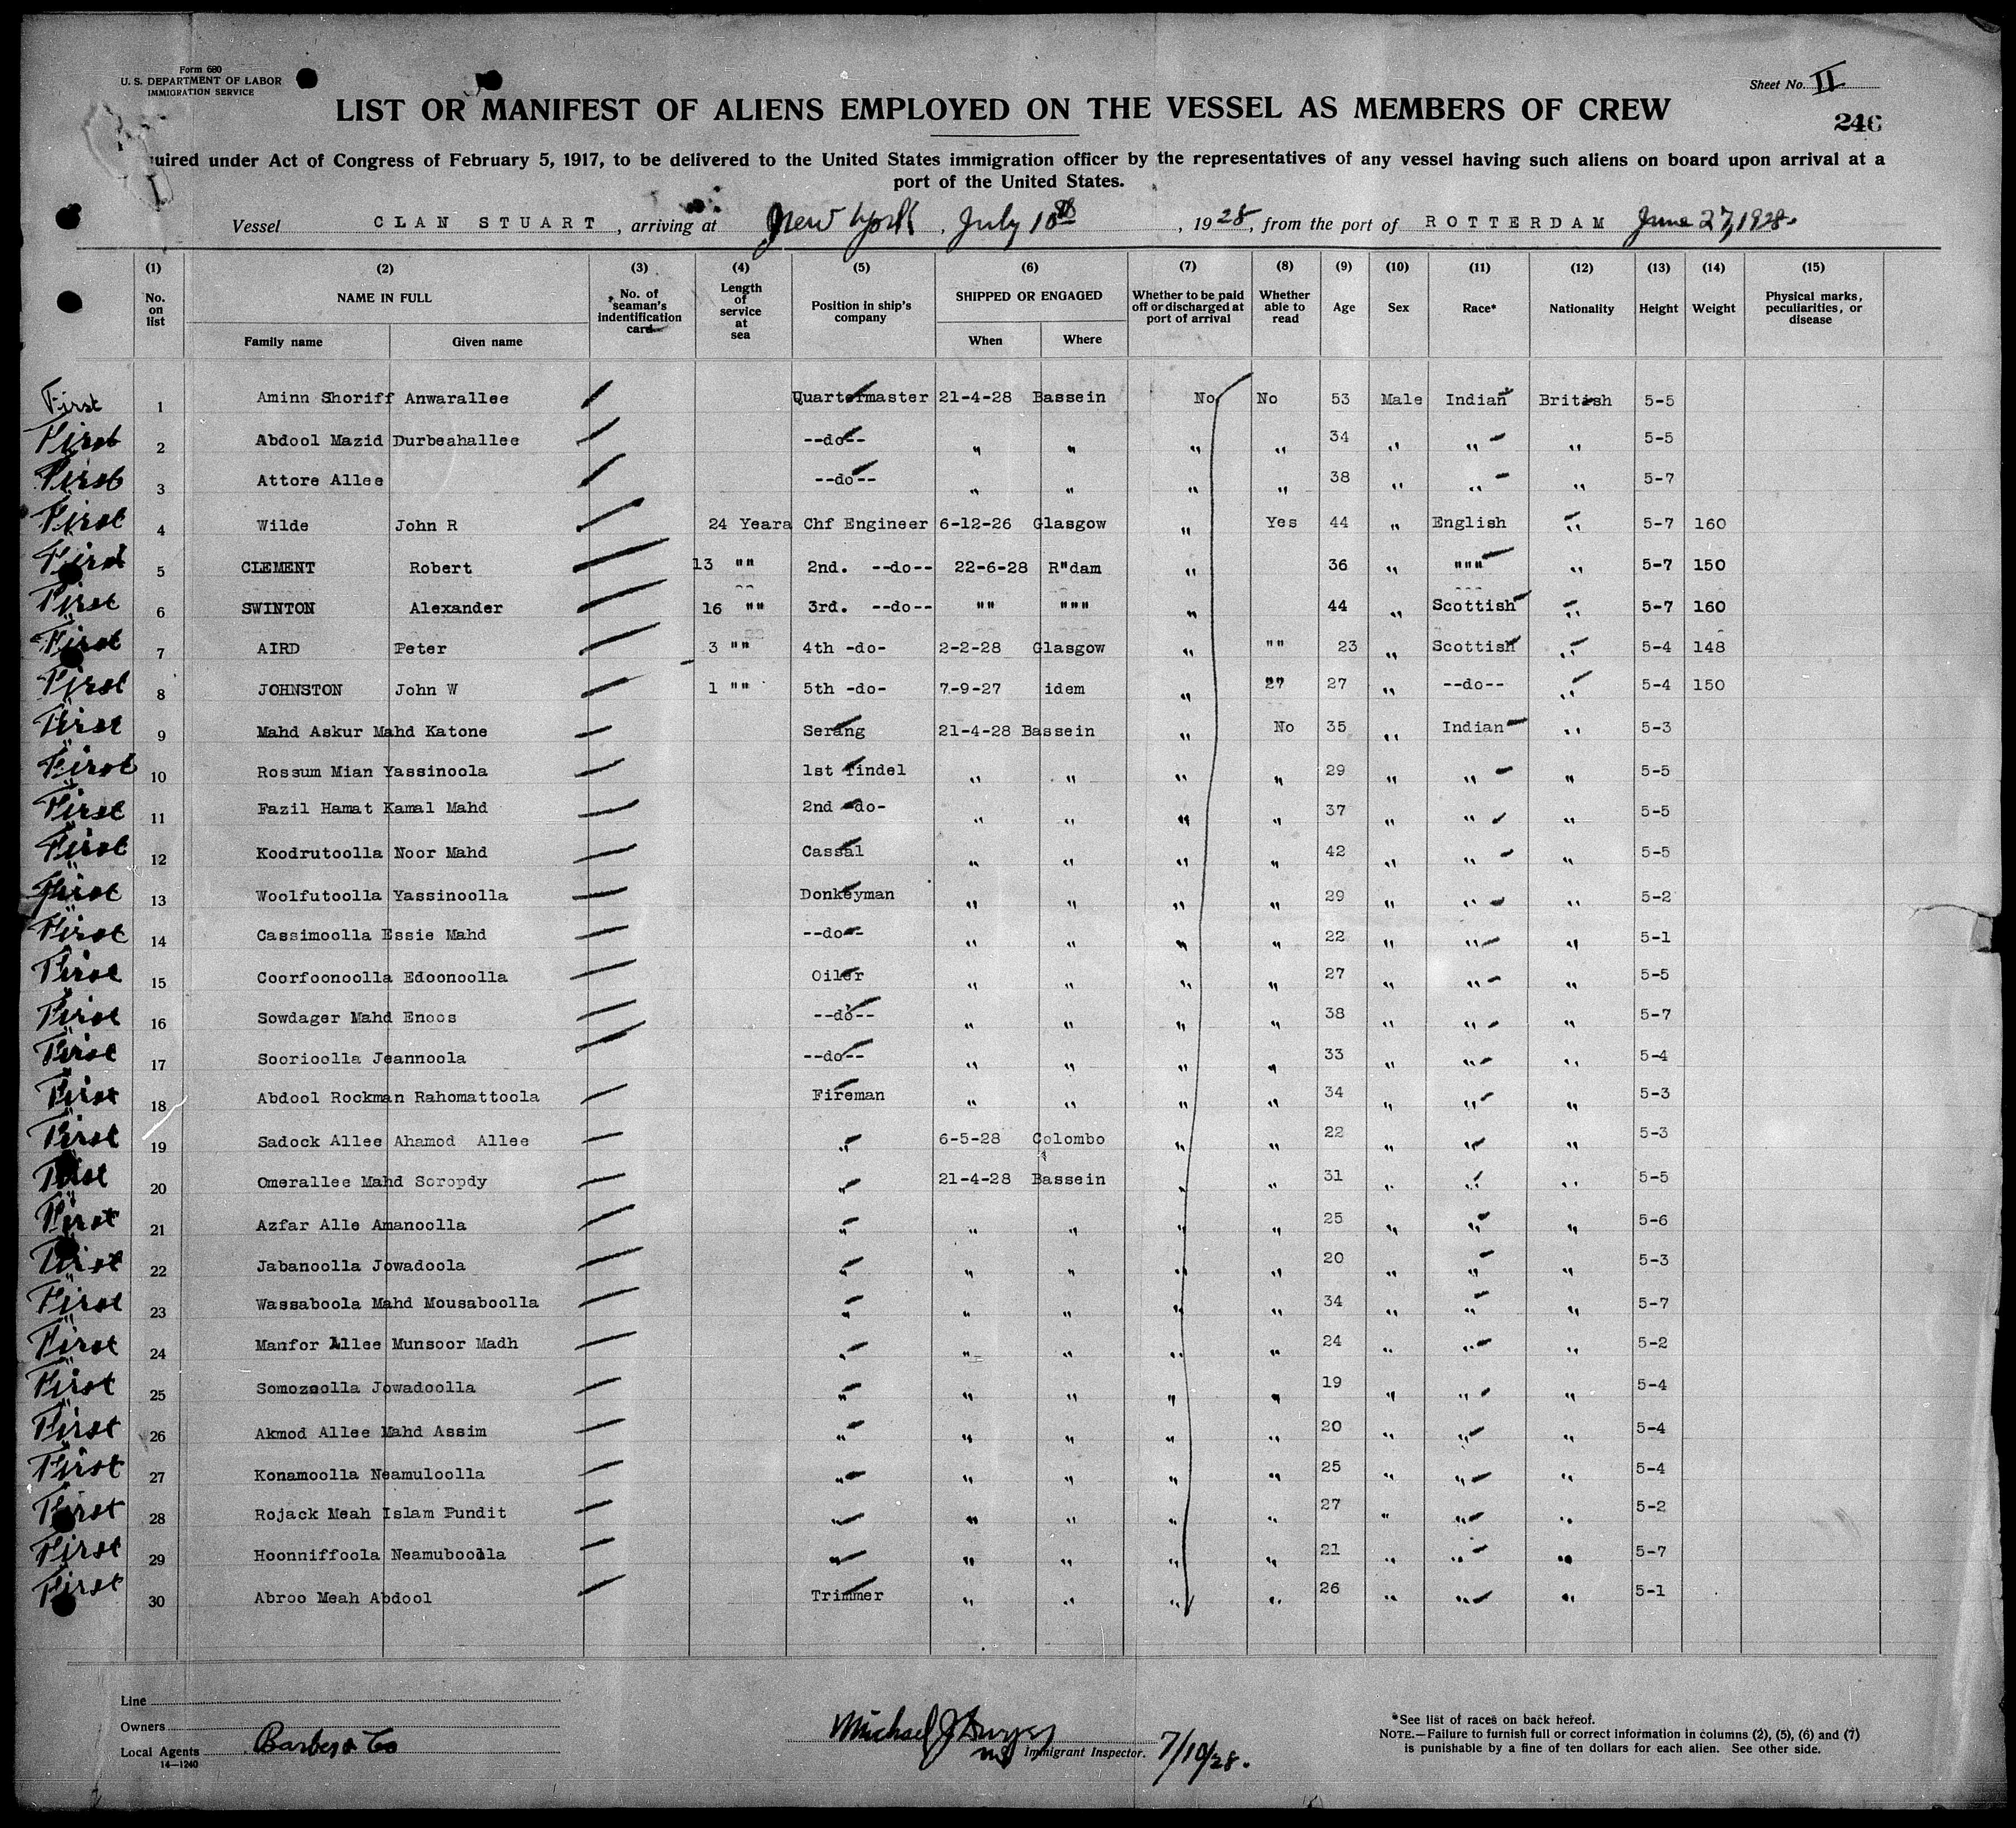 Form 680
U. S. DEPARTMENT OF LABOR
IMMIGRATION SERVICE
Sheet No. II
LIST OR MANIFEST OF ALIENS EMPLOYED ON THE VESSEL AS MEMBERS OF CREW
246
uired under Act of Congress of February 5, 1917, to be delivered to the United States immigration officer by the representatives of any vessel having such aliens on board upon arrival at a
port of the United States.
Vessel CLAN STUART, arriving at New York, July 10th, 1928, from the port of ROTTERDAM June 27, 1928.
(1) (2) (3) (4) (5) (6) (7) (8) (9) (10) (11) (12) (13) (14) (15)
No. on list NAME IN FULL Family name Given name No. of seaman's indentification card Length of service at sea Position in ship's company SHIPPED OR ENGAGED When Where Whether to be paid off or discharged at port of arrival Whether able to read Age Sex Race* Nationality Height Weight Physical marks, peculiarities, or disease
First 1 Aminn Shoriff Anwarallee Quartermaster 21-4-28 Bassein No No 53 Male Indian British 5-5
First 2 Abdool Mazid Durbeahallee --do-- " " " " 34 " " " 5-5
First 3 Attore Allee --do-- " " " " 38 " " " 5-7
First 4 Wilde John R 24 Yeara Chf Engineer 6-12-26 Glasgow " Yes 44 " English " 5-7 160
First 5 CLEMENT Robert 13 "" 2nd. --do-- 22-6-28 R"dam " 36 " """ " 5-7 150
First 6 SWINTON Alexander 16 "" 3rd. --do-- "" """ " 44 " Scottish " 5-7 160
First 7 AIRD Peter 3 "" 4th -do- 2-2-28 Glasgow " "" 23 " Scottish " 5-4 148
First 8 JOHNSTON John W 1 "" 5th -do- 7-9-27 idem " 27 27 " --do-- " 5-4 150
First 9 Mahd Askur Mahd Katone Serang 21-4-28 Bassein " No 35 " Indian " 5-3
First 10 Rossum Mian Yassinoola 1st Tindel " " " " 29 " " " 5-5
First 11 Fazil Hamat Kamal Mahd 2nd -do- " " " " 37 " " " 5-5
First 12 Koodrutoolla Noor Mahd Cassal " " " " 42 " " " 5-5
First 13 Woolfutoolla Yassinoolla Donkeyman " " " " 29 " " " 5-2
First 14 Cassimoolla Essie Mahd --do-- " " " " 22 " " " 5-1
First 15 Coorfoonoolla Edoonoolla Oiler " " " " 27 " " " 5-5
First 16 Sowdager Mahd Enoos --do-- " " " " 38 " " " 5-7
First 17 Soorioolla Jeannoola --do-- " " " " 33 " " " 5-4
First 18 Abdool Rockman Rahomattoola Fireman " " " " 34 " " " 5-3
First 19 Sadock Allee Ahamod Allee " 6-5-28 Colombo " " 22 " " " 5-3
First 20 Omerallee Mahd Soropdy " 21-4-28 Bassein " " 31 " " " 5-5
First 21 Azfar Alle Amanoolla " " " " " 25 " " " 5-6
First 22 Jabanoolla Jowadoola " " " " " 20 " " " 5-3
First 23 Wassaboola Mahd Mousaboolla " " " " " 34 " " " 5-7
First 24 Manfor Allee Munsoor Madh " " " " " 24 " " " 5-2
First 25 Somozoolla Jowadoolla " " " " " 19 " " " 5-4
First 26 Akmod Allee Mahd Assim " " " " " 20 " " " 5-4
First 27 Konamoolla Neamuloolla " " " " " 25 " " " 5-4
First 28 Rojack Meah Islam Pundit " " " " " 27 " " " 5-2
First 29 Hoonniffoola Neamuboolla " " " " " 21 " " " 5-7
First 30 Abroo Meah Abdool Trimmer " " " " 26 " " " 5-1
Line
Owners
Local Agents Barber & Co
14—1240
Michael J
Immigrant Inspector. 7/10/28.
*See list of races on back hereof.
NOTE.—Failure to furnish full or correct information in columns (2), (5), (6) and (7)
is punishable by a fine of ten dollars for each alien. See other side.